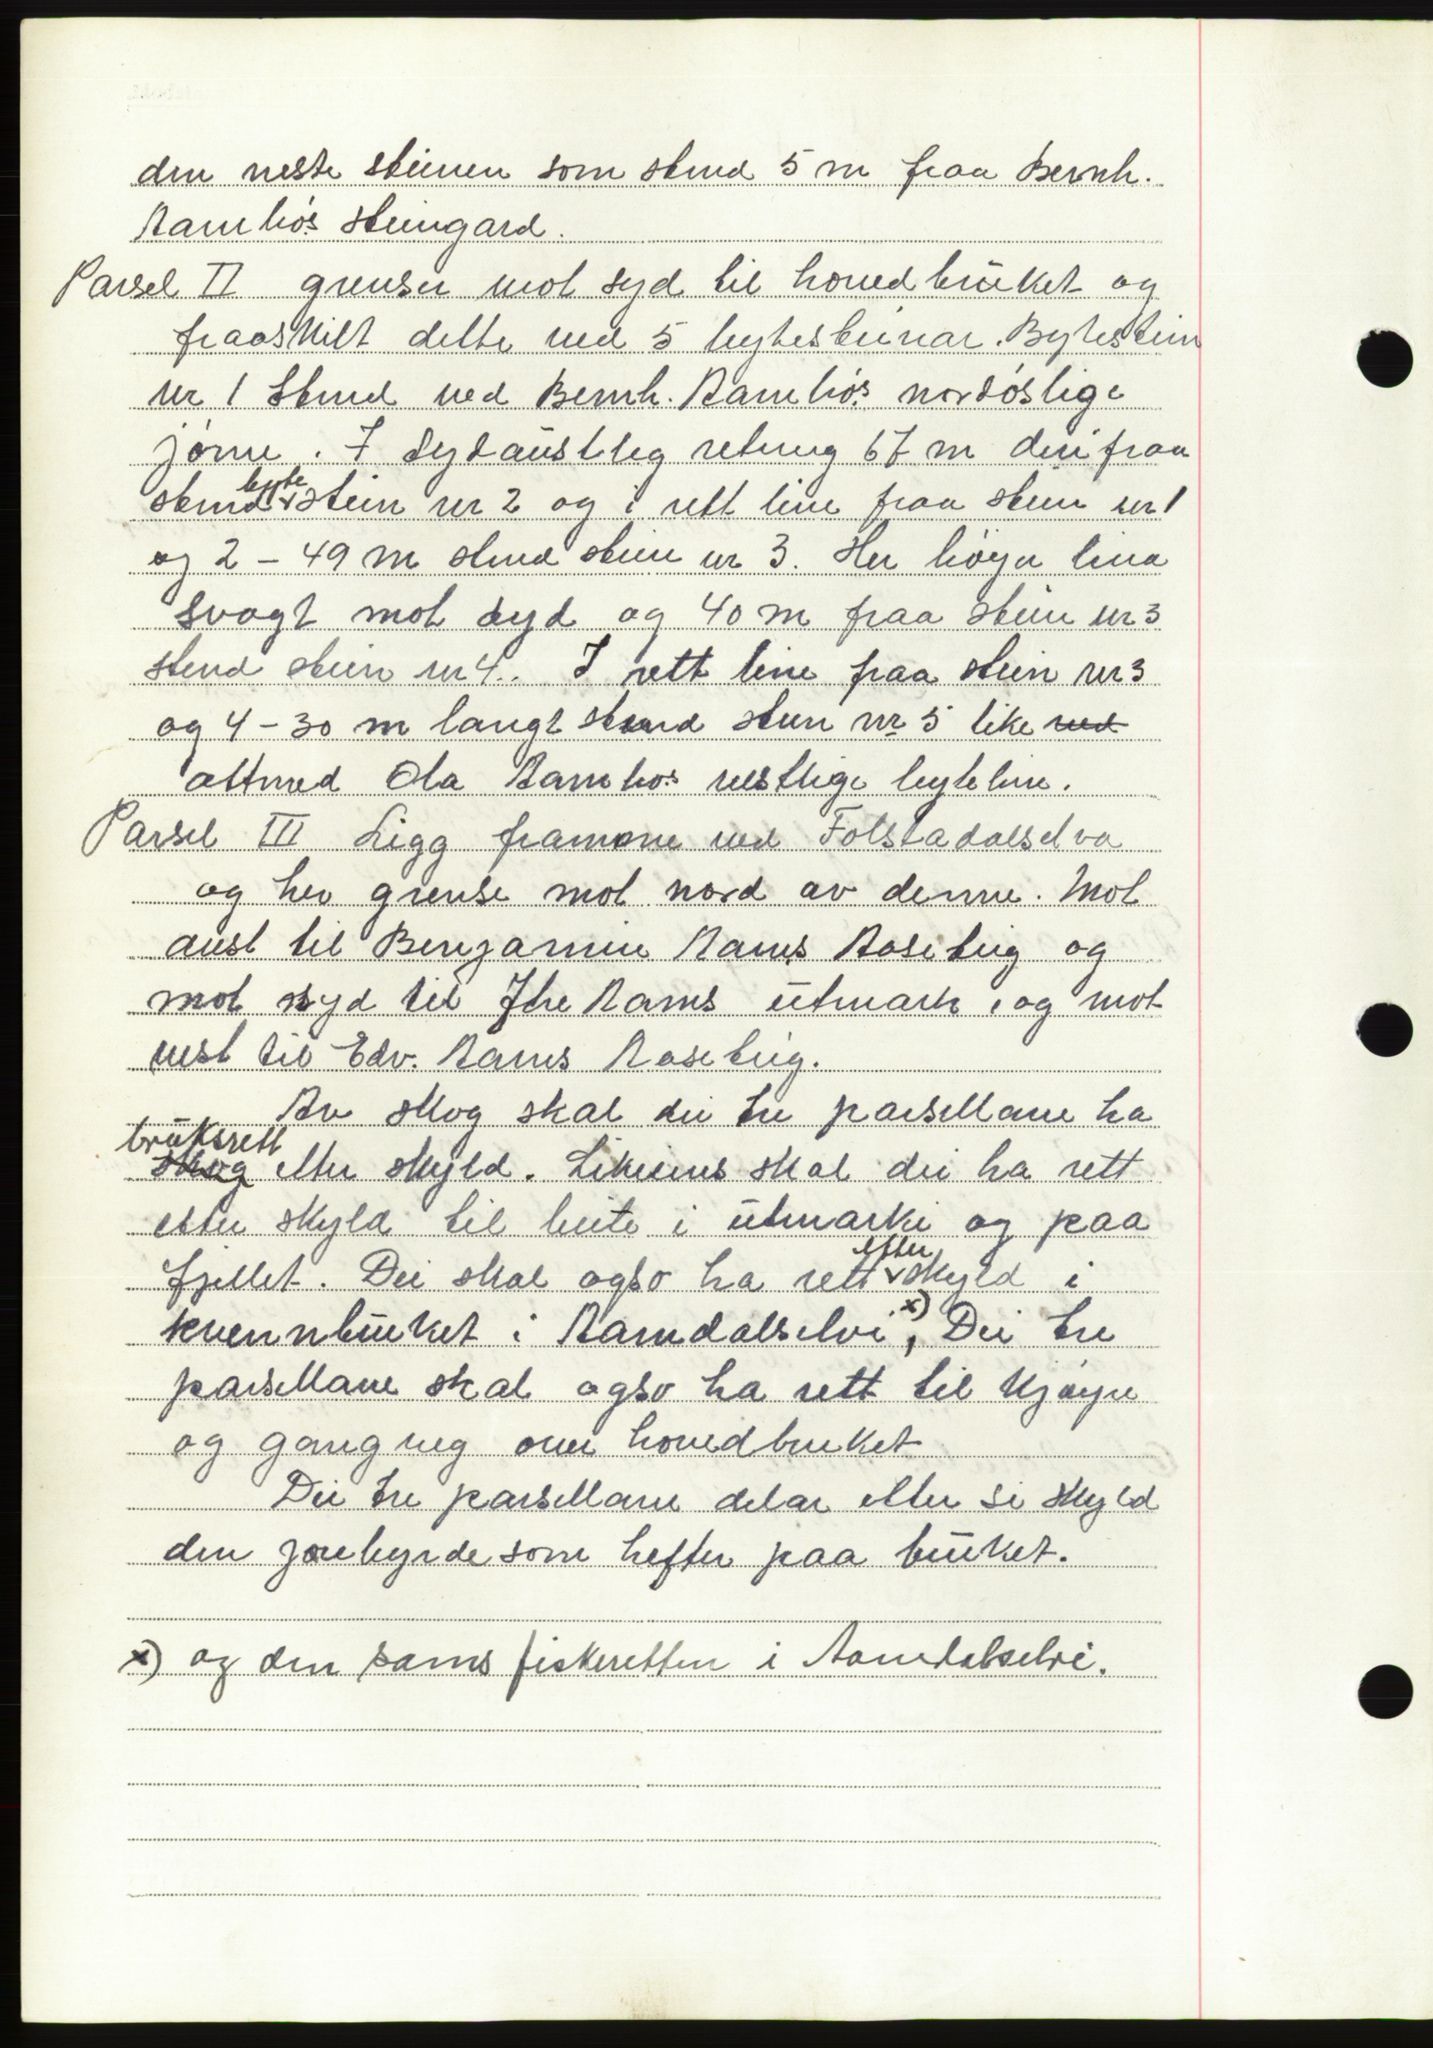 den neste steinen som stend 5 m fraa Bernh.
Aamhós steingard.
Parsel II grenser mot syd til hovedbrŭket og
fraaskilt dette ved 5 bytesteinar. Bytestein
nr 1 Stend ved Bernh. Aamhós nordóslige
jórne. I sydaŭstleg retning 67 m derifraa
stend byte stein nr 2 og i rett line fraa stein nr 1
og 2 – 49 m stend stein nr 3. Her böyer lina
svagt mot syd og 40 m fraa stein nr 3
stend stein nr 4. I rett line fraa stein nr 3
og 4 – 30 m langt stend stein nr 5 like ved
attmed Ola Aamhos vestlige byteline.
Parsel III Ligg framme ved Folstadalselva
og hev grense mot nord av denne. Mot
aust til Benjamin Aams Aaseteig og
mot syd til Jhe Aams ŭtmark, og mot
vest til Edv. Aams Aaseteig.
Av skog skal dei tre parsellane ha
brŭksrett
skog etter skyld. Likeeins skal dei ha rett
etter skyld til beite i ŭtmarki og paa
fjellet. Dei skal ogso ha rett etter skyld i
kvennbrŭket i Aamdalselvi x), Dei tre
parsellane skal ogso ha rett til kjöyre
og gangveg over hovedbruket
Dei tre parsellane delar etter si skyld
den jorebyrde som hefter paa brŭket.
x) og den sams fiskeretten i Aamdalselvi.